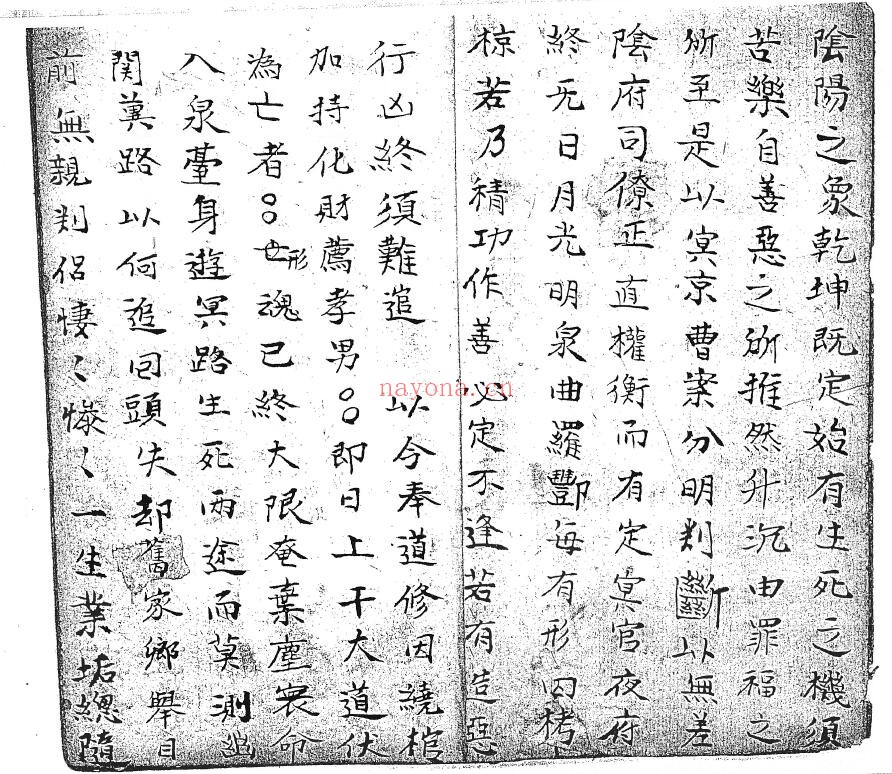 陰陽之象乾坤既定始有生死之機須
苦樂自善惡之所推然升沉由罪福之
所至是以冥京曹案分明判斷以無差
陰府司僚正直權衡而有定冥官夜府
終无日月光明泉曲羅酆每有形囚栲
椋若乃積功作善必定不逢若有造惡
行凶終須難逭 以今奉道修因繞棺
加持化財薦孝男〇〇即日上干大道伏
為亡者〇〇世形魂已終大限奄棄塵寰命
入泉臺身遊冥路生死兩途而莫測幽
関冀路以何追回頭失却舊家鄉舉目
前無親判侶悽〻慘〻一生業垢總隨
nayona.cn